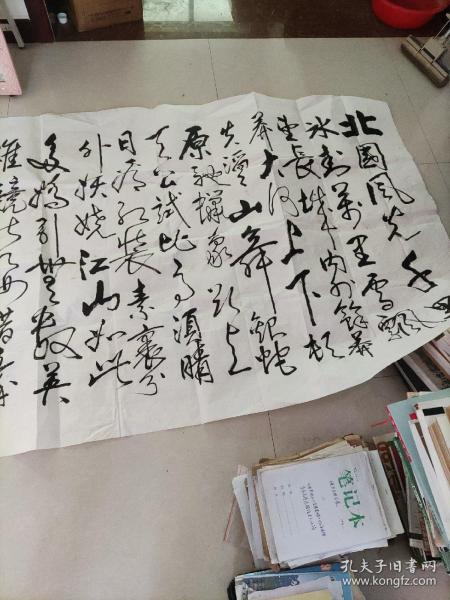 北國风光千
冰封万里雪飘
望长城内外馀莽
莽大河上下顿
失滔滔山舞银蛇
原驰蠟象欲与
天公试比高须晴
日看红装素裹分
外妖娆江山如此
多娇引无数英
雄竞折腰昔秦
笔记本
孔夫子旧书网
www.kongfz.com